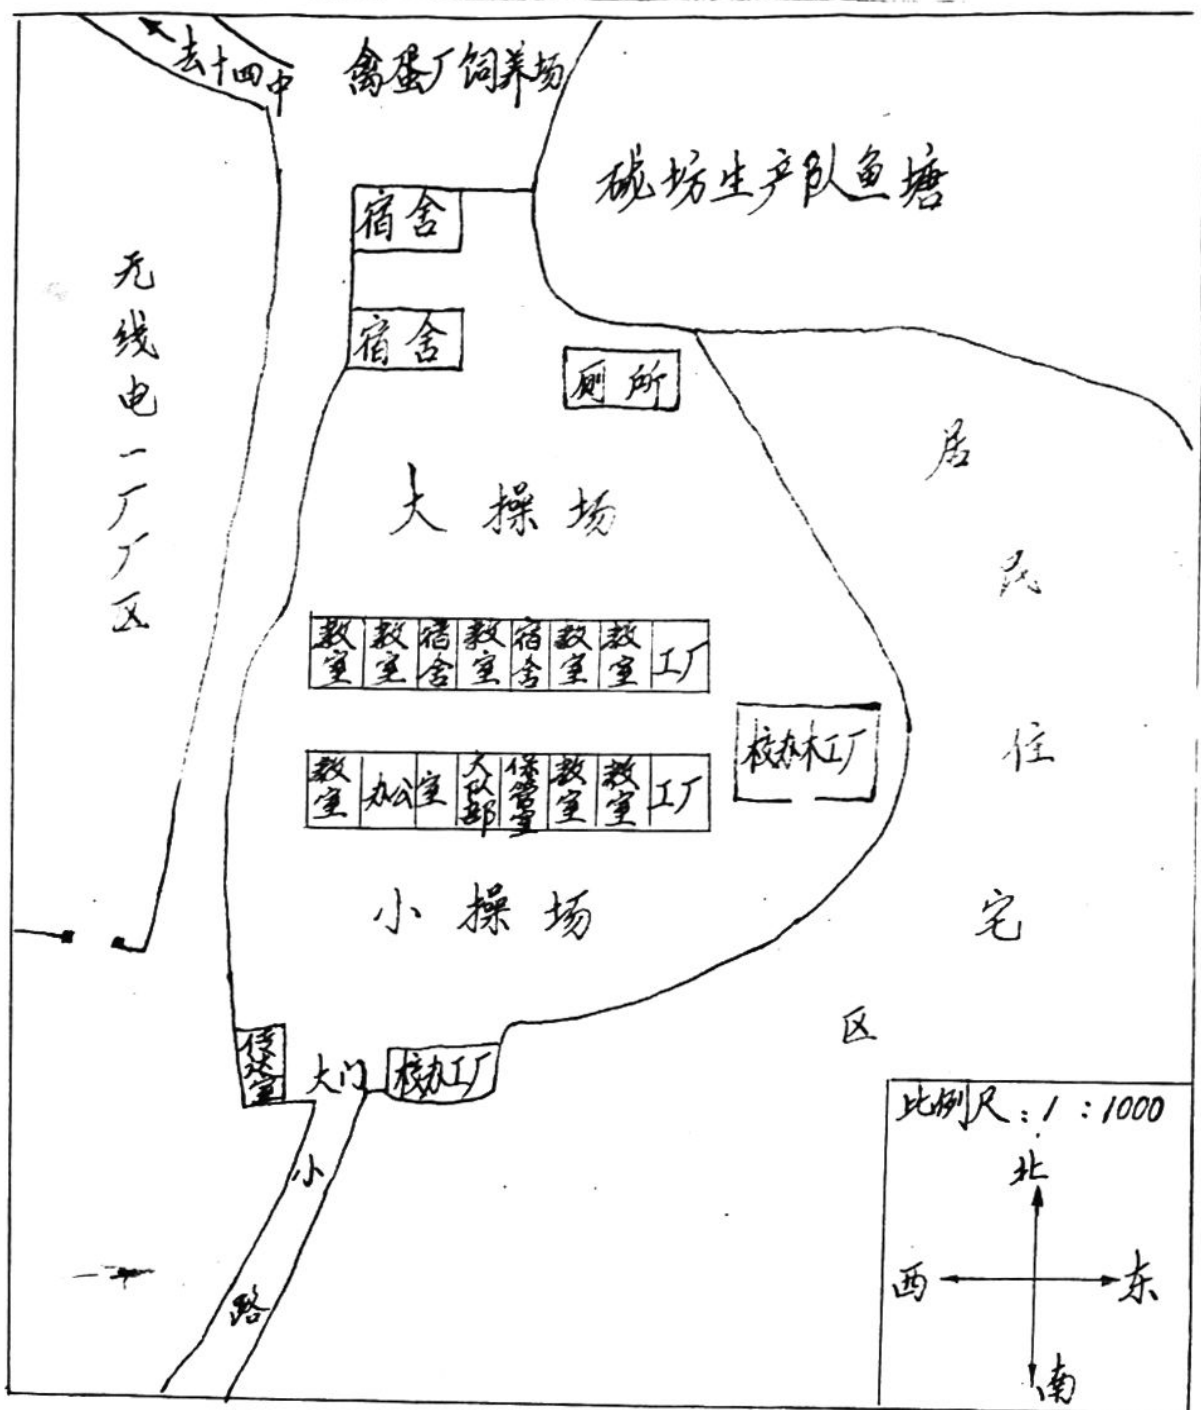 去十四中
禽蛋厂饲养场
硫坊生产队鱼塘
宿舍
宿舍
厕所
无线电一厂厂区
居民住宅区
大操场
教室 教室 宿舍 教室 宿舍 教室 教室 工厂
校办木工厂
教室 办公室 大队部 保管室 教室 教室 工厂
小操场
传达室
大门
校办工厂
小路
比例尺:1:1000
北
西
东
南